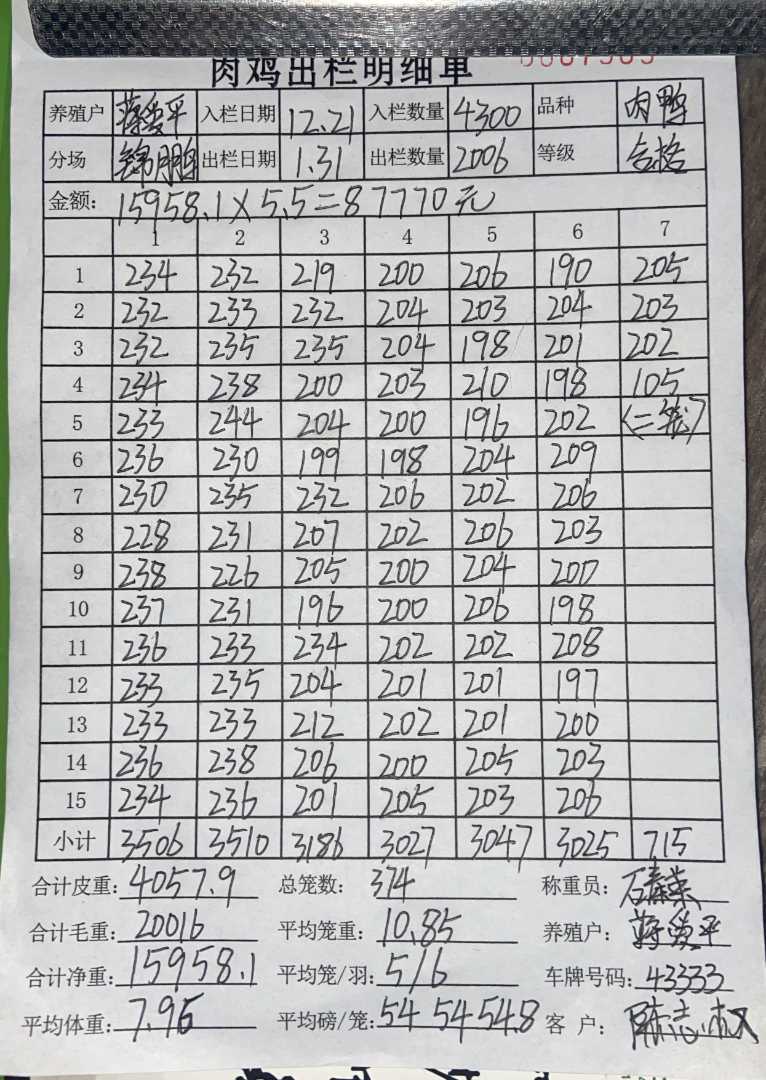 肉鸡出栏明细单
养殖户 蒋爱平 入栏日期 12.21 入栏数量 4300 品种 肉鸭
分场 锦鹏 出栏日期 1.31 出栏数量 2006 等级 合格
金额: 15958.1×5.5=87770元
1 2 3 4 5 6 7
1 234 232 219 200 206 190 205
2 232 233 232 204 203 204 203
3 232 235 235 204 198 201 202
4 234 238 200 203 210 198 105
5 233 244 204 200 196 202 (二笼)
6 236 230 199 198 204 209
7 230 235 232 206 202 206
8 228 231 207 202 206 203
9 238 226 205 200 204 200
10 237 231 196 200 206 198
11 236 233 234 202 202 208
12 233 235 204 201 201 197
13 233 233 212 202 201 200
14 236 238 206 200 205 203
15 234 236 201 205 203 206
小计 3506 3510 3186 3027 3047 3025 715
合计皮重: 4057.9 总笼数: 374 称重员:
合计毛重: 20016 平均笼重: 10.85 养殖户: 蒋爱平
合计净重: 15958.1 平均笼/羽: 5/6 车牌号码: 43333
平均体重: 7.96 平均磅/笼: 54 54 54.8 客 户: 陈志权